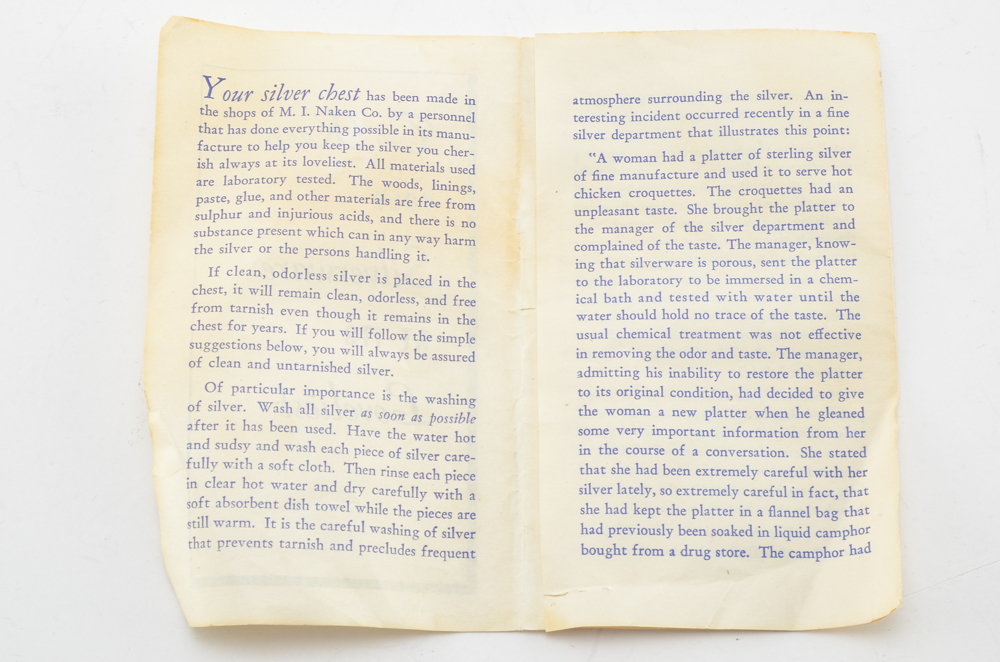 Your silver chest has been made in
the shops of M. I. Naken Co. by a personnel
that has done everything possible in its manu-
facture to help you keep the silver you cher-
ish always at its loveliest. All materials used
are laboratory tested. The woods, linings,
paste, glue, and other materials are free from
sulphur and injurious acids, and there is no
substance present which can in any way harm
the silver or the persons handling it.
If clean, odorless silver is placed in the
chest, it will remain clean, odorless, and free
from tarnish even though it remains in the
chest for years. If you will follow the simple
suggestions below, you will always be assured
of clean and untarnished silver.
Of particular importance is the washing
of silver. Wash all silver as soon as possible
after it has been used. Have the water hot
and sudsy and wash each piece of silver care-
fully with a soft cloth. Then rinse each piece
in clear hot water and dry carefully with a
soft absorbent dish towel while the pieces are
still warm. It is the careful washing of silver
that prevents tarnish and precludes frequent
atmosphere surrounding the silver. An in-
teresting incident occurred recently in a fine
silver department that illustrates this point:
"A woman had a platter of sterling silver
of fine manufacture and used it to serve hot
chicken croquettes. The croquettes had an
unpleasant taste. She brought the platter to
the manager of the silver department and
complained of the taste. The manager, know-
ing that silverware is porous, sent the platter
to the laboratory to be immersed in a chem-
ical bath and tested with water until the
water should hold no trace of the taste. The
usual chemical treatment was not effective
in removing the odor and taste. The manager,
admitting his inability to restore the platter
to its original condition, had decided to give
the woman a new platter when he gleaned
some very important information from her
in the course of a conversation. She stated
that she had been extremely careful with her
silver lately, so extremely careful in fact, that
she had kept the platter in a flannel bag that
had previously been soaked in liquid camphor
bought from a drug store. The camphor had